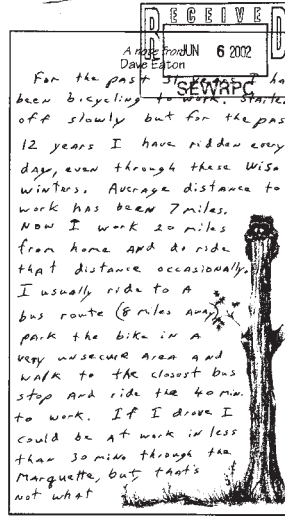 RECEIVED
A note from JUN 6 2002
Dave Eaton
SEWRPC
For the past 31 years I ha
been bicycling to work. Starte
off slowly but for the pas
12 years I have ridden every
day, even through these Wiso
winters. Average distance to
work has been 7 miles.
NOW I work 20 miles
from home AND do ride
that distance occasionally.
I usually ride to A
bus route (8 miles away)
park the bike in A
very unsecure area and
walk to the closest bus
stop And ride the 40 min.
to work. If I drove I
could be at work in less
than 30 mins through the
Marquette, but, that's
not what